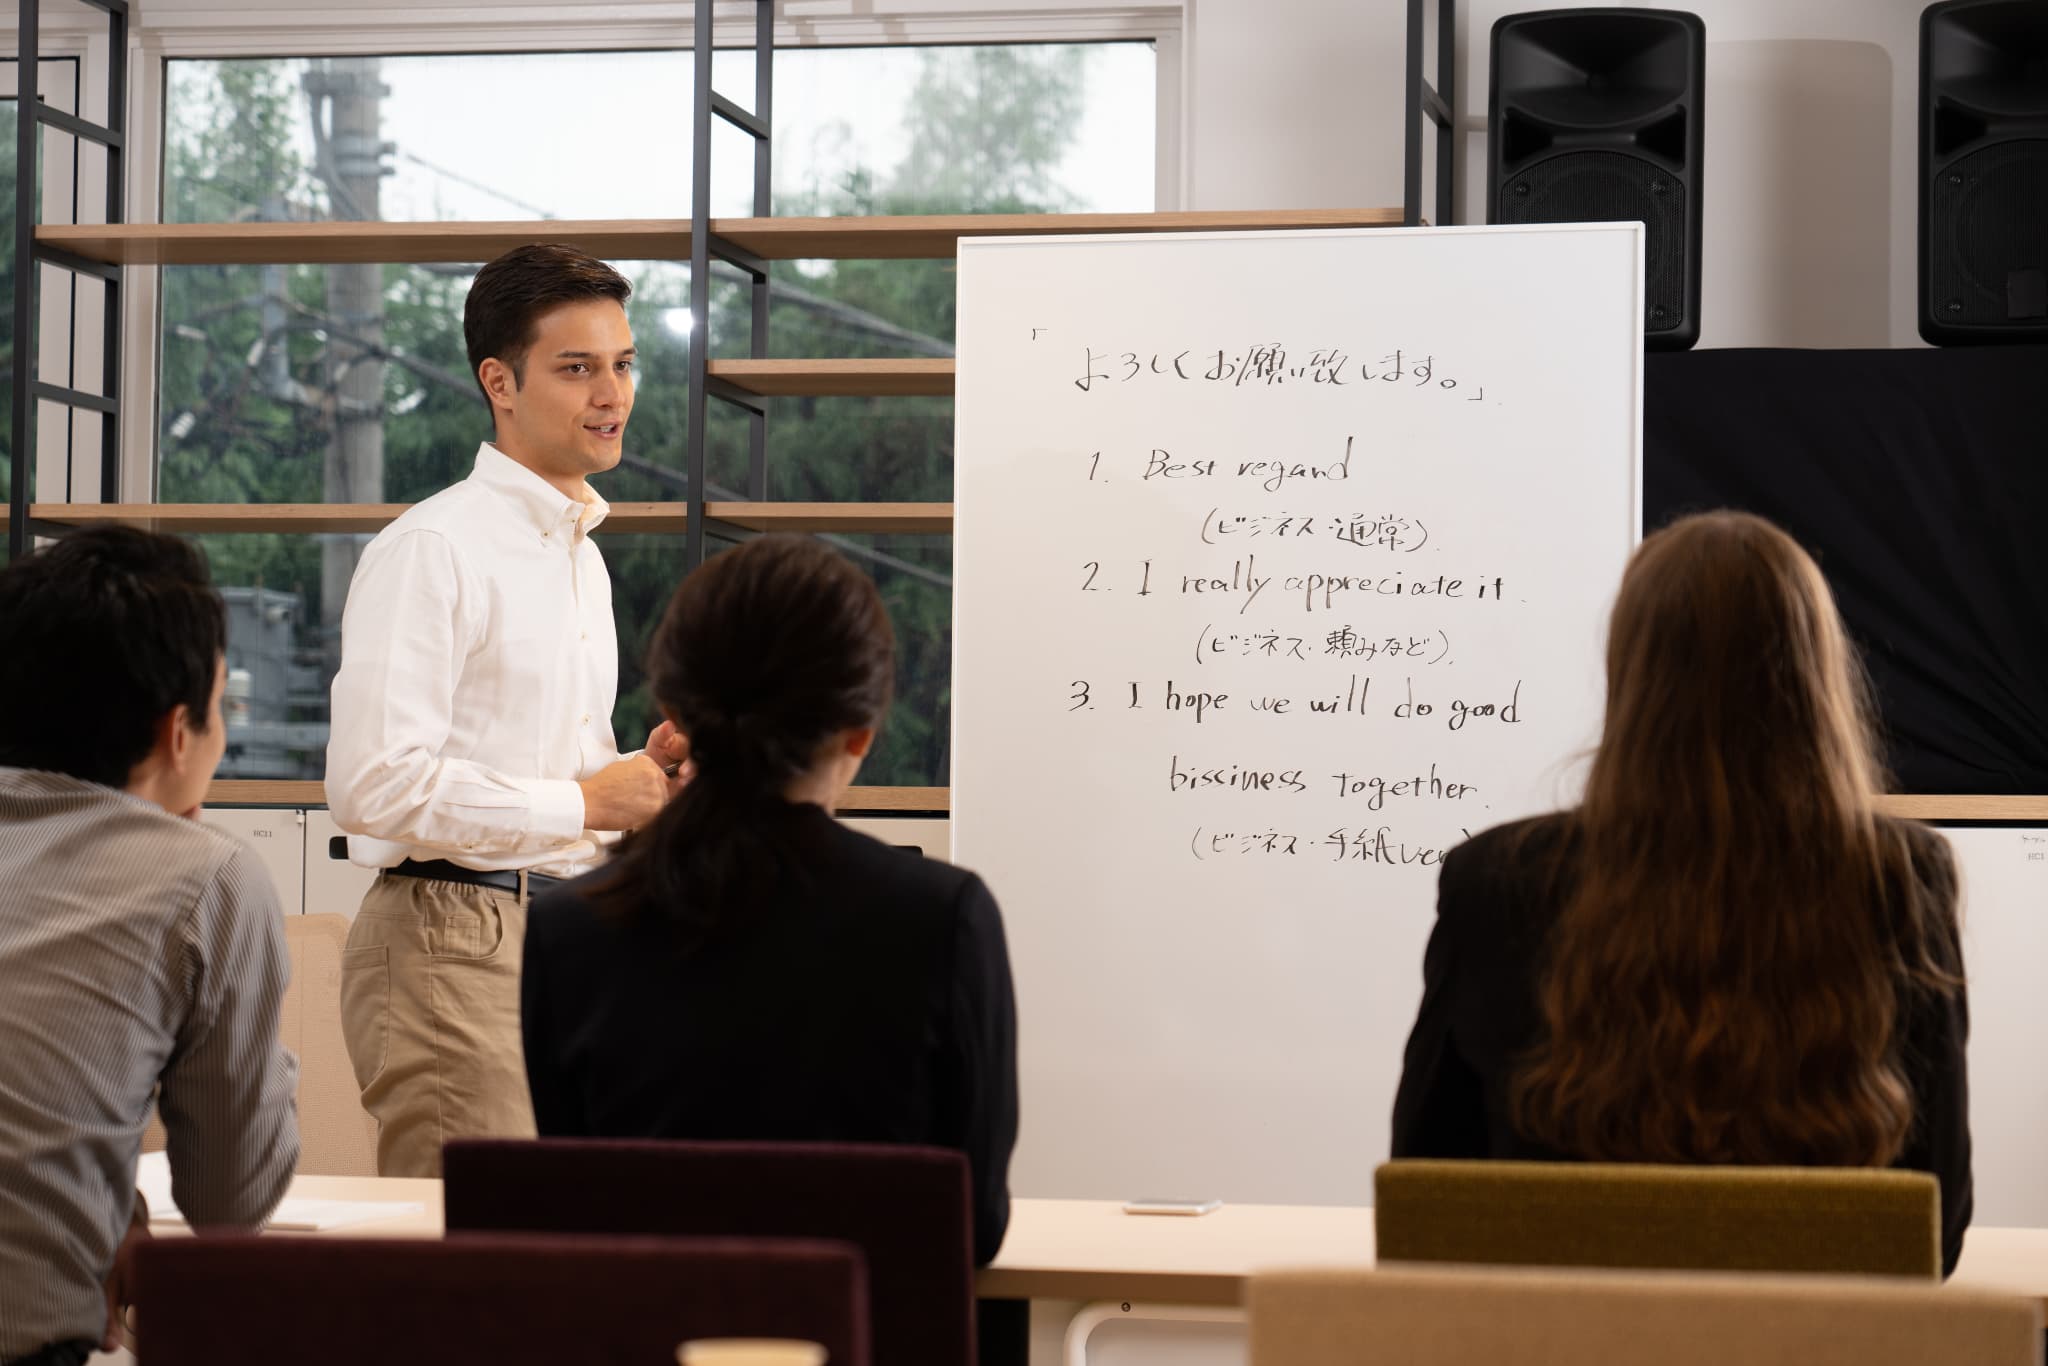 「よろしくお願い致します。」
1. Best regard
(ビジネス・通常).
2. I really appreciate it.
(ビジネス・頼みなど).
3. I hope we will do good
bissiness together.
(ビジネス・手紙ver
HC11
HC1